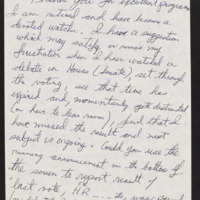 Thank you for excellent programs
I am retired and have become a
devoted watcher. I have a suggestion
which may satisfy or remove my
frustration when I have watched a
debate on House (Senate), sat through
the voting, see that time has
expired and, momentarily get distracted
(or have to leave room), find that I
have missed the result and next
subject is ongoing. Could you use the
running announcement on the bottom of
the screen to report result of
"last vote, HR --- etc, was passed